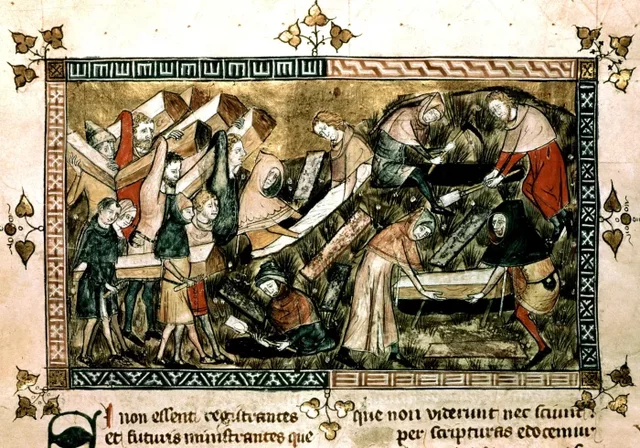 SI non essent registrantes
et futuris ministrantes que
que non viderunt nec sciunt:
per scripturas edocemur